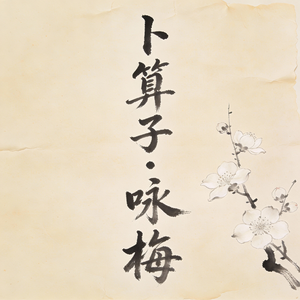 卜算子·咏梅